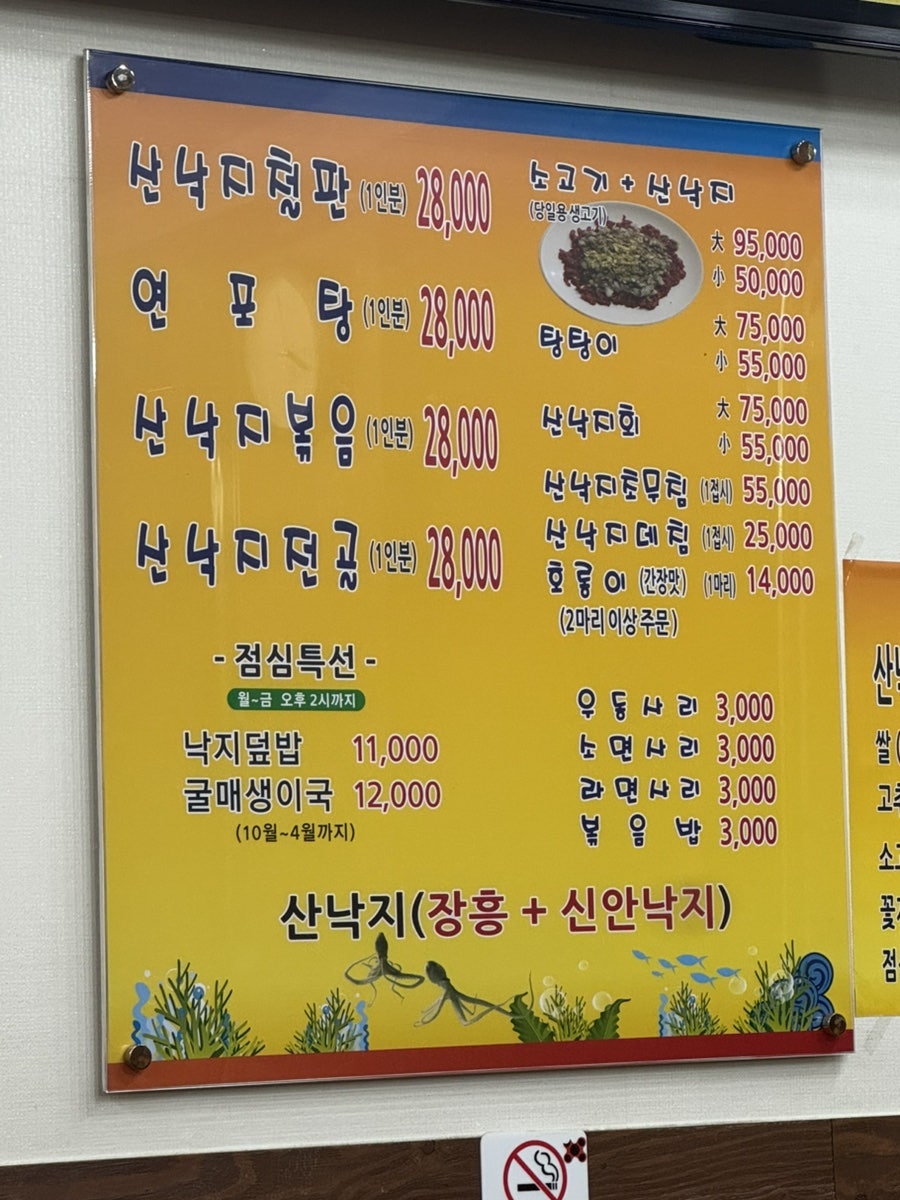 산낙지철판 (1인분) 28,000
연포탕 (1인분) 28,000
산낙지볶음 (1인분) 28,000
산낙지전골 (1인분) 28,000
- 점심특선 -
월~금 오후 2시까지
낙지덮밥 11,000
굴매생이국 12,000
(10월~4월까지)
소고기 + 산낙지
(당일용생고기)
大 95,000
小 50,000
탕탕이 大 75,000
小 55,000
산낙지회 大 75,000
小 55,000
산낙지초무침 (1접시) 55,000
산낙지데침 (1접시) 25,000
호롱이 (간장맛) (1마리) 14,000
(2마리 이상 주문)
우동사리 3,000
소면사리 3,000
라면사리 3,000
볶음밥 3,000
산낙지(장흥 + 신안낙지)
쌀(